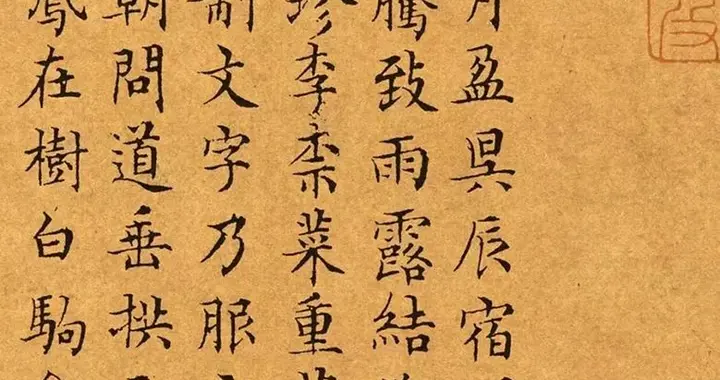 月盈昃辰宿
騰致雨露結
珍李柰菜重
制文字乃服
朝問道垂拱
鳳在樹白駒